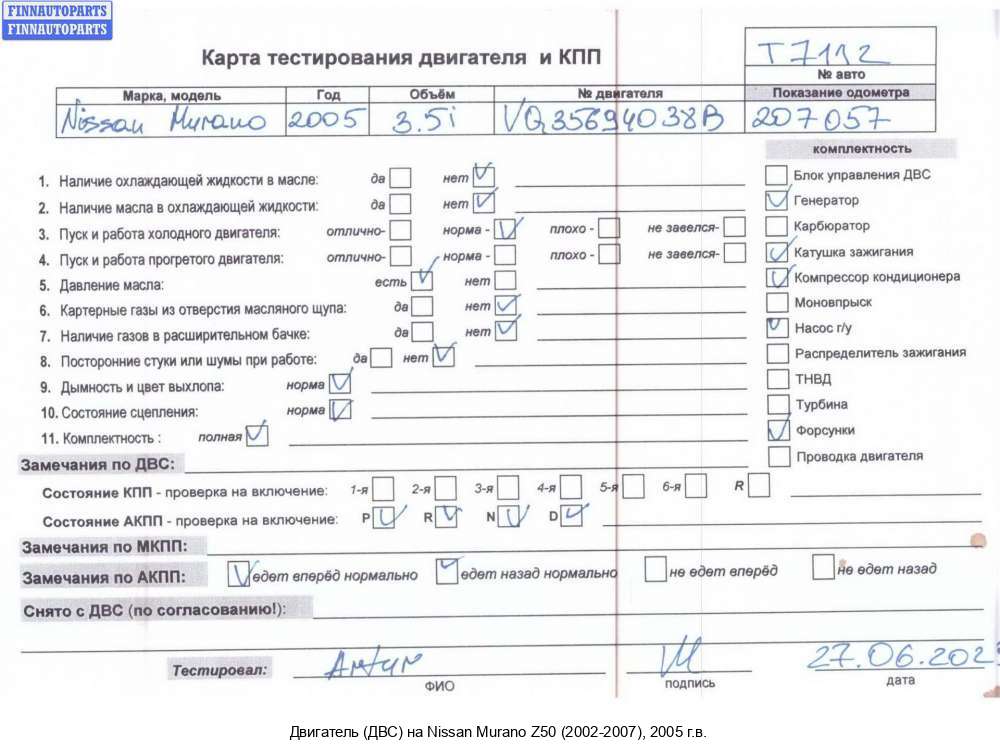 FINNAUTOPARTS
FINNAUTOPARTS
Карта тестирования двигателя и КПП
T7112
№ авто
Марка, модель Год Объём № двигателя Показание одометра
Nissan Murano 2005 3.5i VQ35694038B 207057
комплектность
1. Наличие охлаждающей жидкости в масле: да нет
Блок управления ДВС
2. Наличие масла в охлаждающей жидкости: да нет
Генератор
3. Пуск и работа холодного двигателя: отлично- норма - плохо - не завелся-
Карбюратор
4. Пуск и работа прогретого двигателя: отлично- норма - плохо - не завелся-
Катушка зажигания
5. Давление масла: есть нет
Компрессор кондиционера
6. Картерные газы из отверстия масляного щупа: да нет
Моновпрыск
7. Наличие газов в расширительном бачке: да нет
Насос г/у
8. Посторонние стуки или шумы при работе: да нет
Распределитель зажигания
9. Дымность и цвет выхлопа: норма
ТНВД
10. Состояние сцепления: норма
Турбина
11. Комплектность : полная
Форсунки
Замечания по ДВС:
Проводка двигателя
Состояние КПП - проверка на включение: 1-я 2-я 3-я 4-я 5-я 6-я R
Состояние АКПП - проверка на включение: P R N D
Замечания по МКПП:
Замечания по АКПП: едет вперёд нормально едет назад нормально не едет вперёд не едет назад
Снято с ДВС (по согласованию!):
Тестировал: Артур 27.06.202
ФИО подпись дата
Двигатель (ДВС) на Nissan Murano Z50 (2002-2007), 2005 г.в.